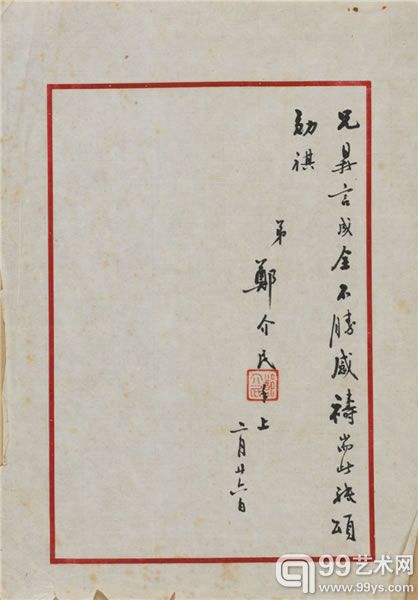 兄昇言成全不勝感禱耑此祗頌
勛祺
弟
鄭介民
上
二月廿六日
99艺术网
www.99ys.com